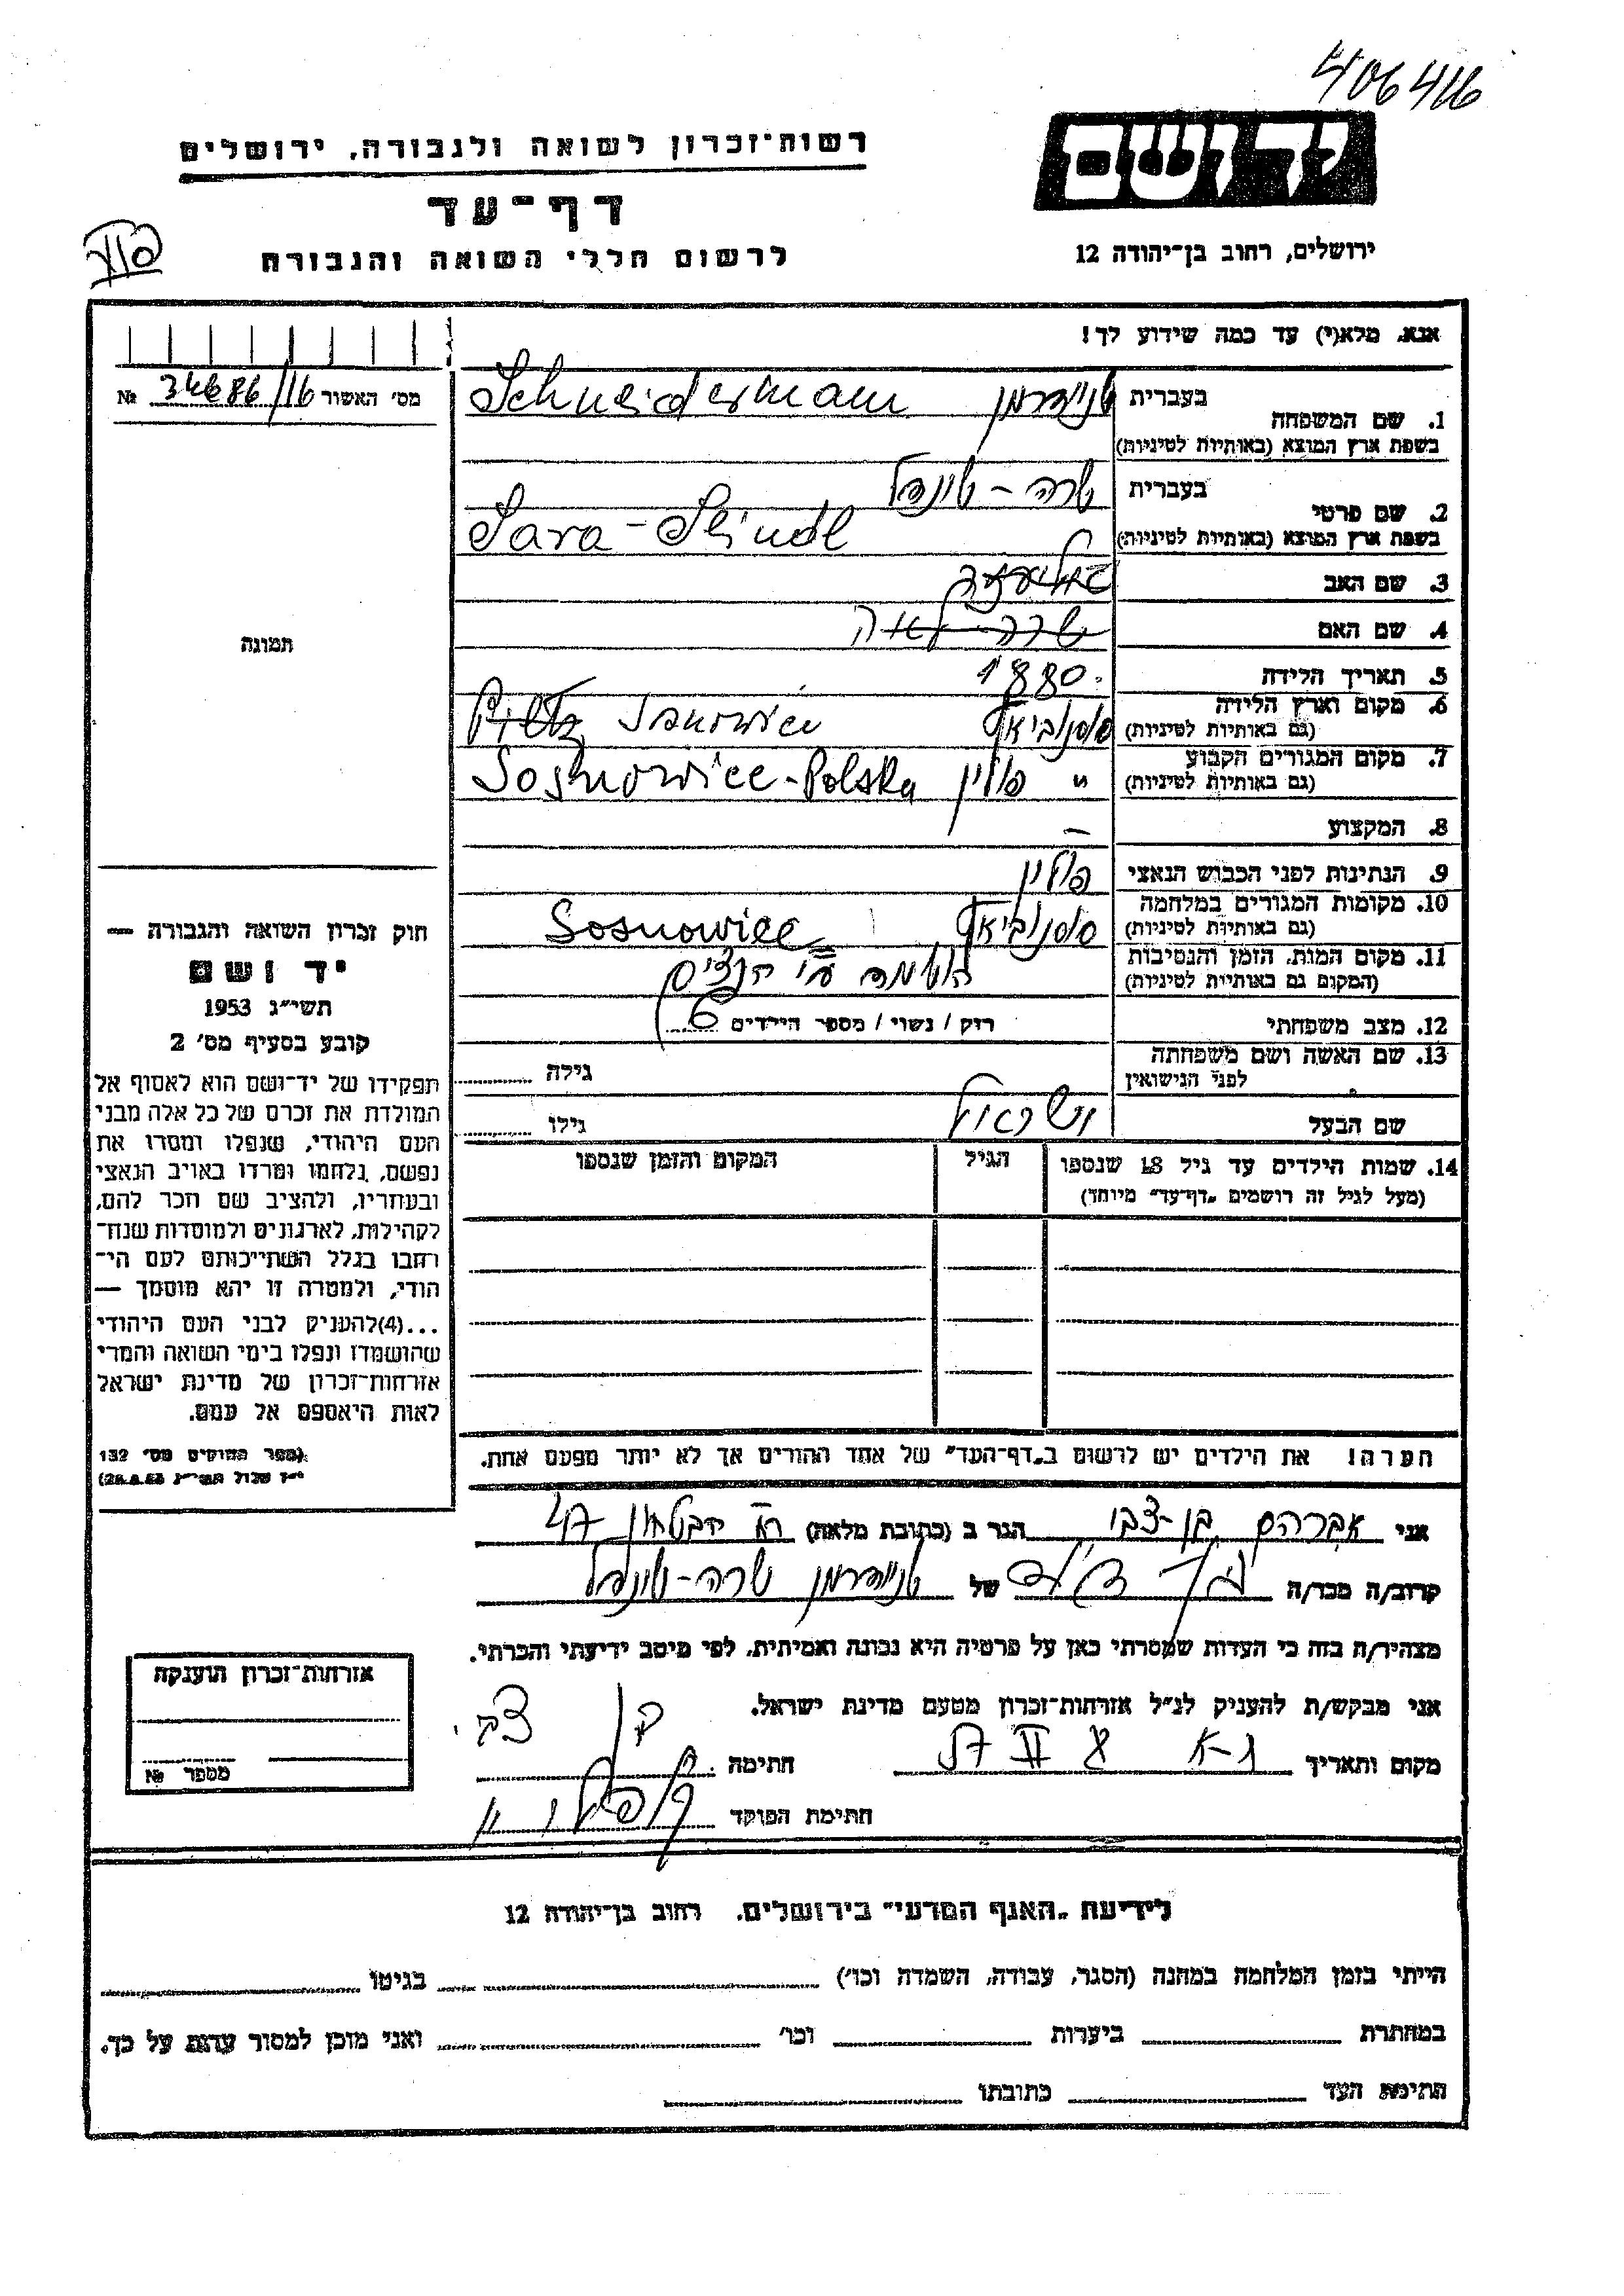 406416
רשות־זכרון לשואה ולגבורה, ירושלים
יד ושם
דף־עד
לרשום חללי השואה והגבורה
ירושלים, רחוב בן־יהודה 12
אנא, מלא(י) עד כמה שידוע לך!
מס' האשור №
1. שם המשפחה בעברית שניידרמן Schneiderman
בשפת ארץ המוצא (באותיות לטיניות)
2. שם פרטי בעברית שרה-שינדל
בשפת ארץ המוצא (באותיות לטיניות) Sara-Sheindl
3. שם האב
4. שם האם שרה-לאה
5. תאריך הלידה 1880
6. מקום וארץ הלידה סוסנוביאץ
(גם באותיות לטיניות)
7. מקום המגורים הקבוע " פולין Sosnowiec-Polska
(גם באותיות לטיניות)
8. המקצוע —
9. הנתינות לפני הכבוש הנאצי פולין
10. מקומות המגורים במלחמה סוסנוביאץ Sosnowiec
(גם באותיות לטיניות)
11. מקום המות, הזמן והנסיבות הושמדה ע"י הנצים
(המקום גם באותיות לטיניות)
12. מצב משפחתי רווק / נשוי / מספר הילדים 6
13. שם האשה ושם משפחתה גילה
לפני הנישואין
שם הבעל ישראל גילו
14. שמות הילדים עד גיל 18 שנספו הגיל המקום והזמן שנספו
(מעל לגיל זה רושמים "דף־עד" מיוחד)
הערה! את הילדים יש לרשום ב"דף־העד" של אחד ההורים אך לא יותר מפעם אחת.
תמונה
חוק זכרון השואה והגבורה —
יד ושם
תשי"ג 1953
קובע בסעיף מס' 2
תפקידו של יד־ושם הוא לאסוף אל
המולדת את זכרם של כל אלה מבני
העם היהודי, שנפלו ומסרו את
נפשם, נלחמו ומרדו באויב הנאצי
ובעוזריו, ולהציב שם וזכר להם,
לקהילות, לארגונים ולמוסדות שנח־
רבו בגלל השתייכותם לעם הי־
הודי, ולמטרה זו יהא מוסמך —
...(4)להעניק לבני העם היהודי
שהושמדו ונפלו בימי השואה והמרי
אזרחות־זכרון של מדינת ישראל
לאות היאספם אל עמם.
(ספר החוקים מס' 132
אני אברהם בן-צבי הגר ב (כתובת מלאה)
קרוב/ה מכר/ה של שניידרמן שרה-שינדל
מצהיר/ה בזה כי העדות שמסרתי כאן על פרטיה היא נכונה ואמיתית, לפי מיטב ידיעתי והכרתי.
אני מבקש/ת להעניק לנ"ל אזרחות־זכרון מטעם מדינת ישראל.
מקום ותאריך חתימה
חתימת הפוקד
אזרחות־זכרון הוענקה
מספר №
לידיעת "האגף המדעי" בירושלים, רחוב בן־יהודה 12
הייתי בזמן המלחמה במחנה (הסגר, עבודה, השמדה וכו') בגיטו
במחתרת ביערות וכו' ואני מוכן למסור עדות על כך.
חתימת העד כתובתו